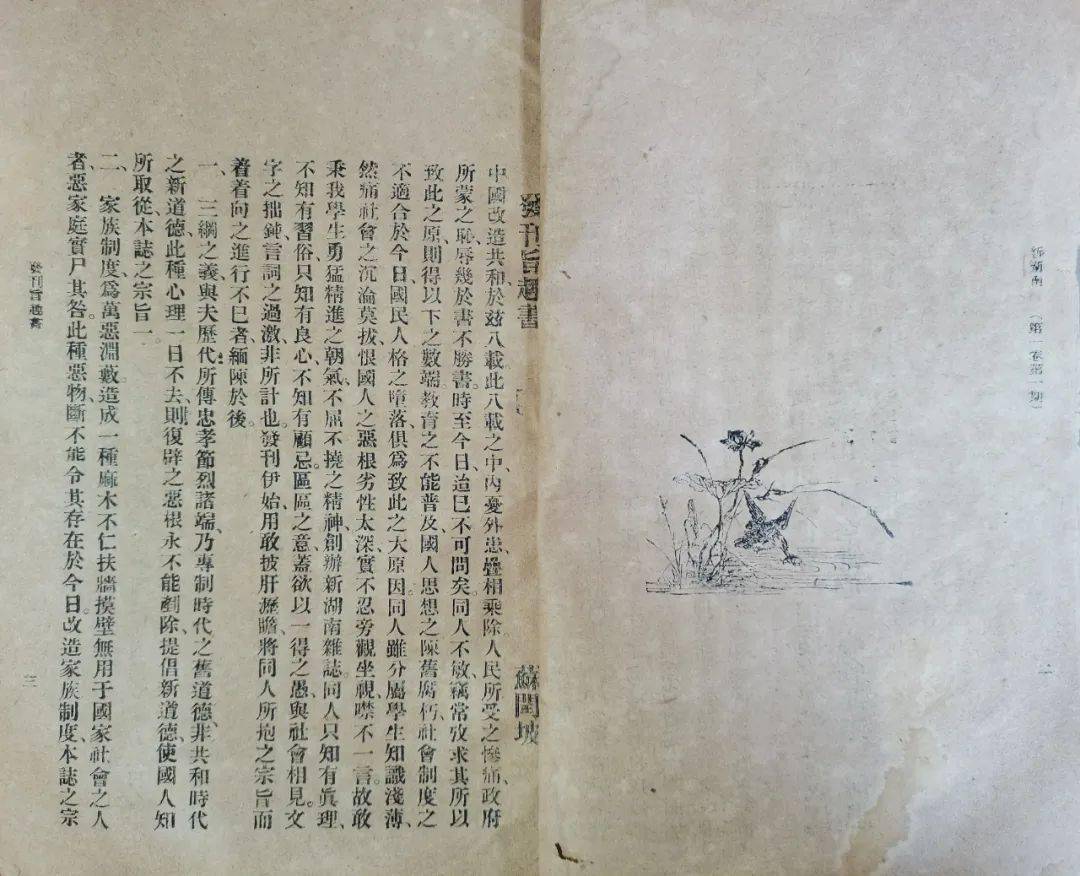 新湖南 （第一卷第一期）
二
發刊旨趣書
蘇閏坡
中國改造共和、於玆八載、此八載之中、內憂外患、疊相乘除、人民所受之慘痛、政府
所蒙之恥辱、幾於書不勝書。時至今日、迨已不可問矣。同人不敏、竊常攷求其所以
致此之原、則得以下之數端、教育之不能普及、國人思想之陳舊腐朽、社會制度之
不適合於今日、國民人格之墮落、俱爲致此之大原因。同人雖分屬學生、知識淺薄、
然痛社會之沉淪莫拔、恨國人之惡根劣性太深、實不忍旁觀坐視、噤不一言。故敢
秉我學生勇猛精進之朝氣、不屈不撓之精神、創辦新湖南雜誌。同人只知有眞理、
不知有習俗、只知有良心、不知有顧忌。區區之意、蓋欲以一得之愚、與社會相見。文
字之拙鈍、言詞之過激、非所計也。發刊伊始、用敢披肝瀝膽、將同人所抱之宗旨、而
着着向之進行不已者、緬陳於後。
一、三綱之義、與夫歷代所傳忠孝節烈諸端、乃專制時代之舊道德、非共和時代
之新道德、此種心理一日不去、則復辟之惡根、永不能剷除、提倡新道德、使國人知
所取從、本誌之宗旨一。
二、家族制度爲萬惡淵藪、造成一種麻木不仁扶牆摸壁無用于國家社會之人
者、惡家庭實尸其咎。此種惡物、斷不能令其存在於今日。改造家族制度、本誌之宗
發刊旨趣書
三